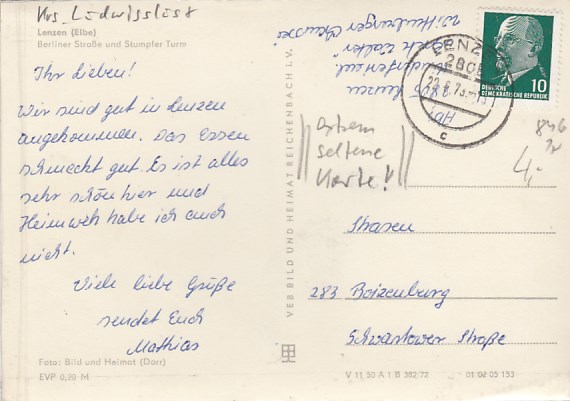 Krs. Ludwigslust
Lenzen (Elbe)
Berliner Straße und Stumpfer Turm
Ihr Lieben!
Wir sind gut in Lenzen
angekommen. Das Essen
schmeckt gut. Es ist alles
sehr schön hier und
Heimweh habe ich auch
nicht.
Viele liebe Grüße
sendet Euch
Mathias
Foto: Bild und Heimat (Darr)
EVP 0,20 M
VEB BILD UND HEIMAT REICHENBACH I. V.
Lenzen
LENZEN
2805
c
10
DEUTSCHE
DEMOKRATISCHE REPUBLIK
extrem
seltene
Karte!
846
4,-
283 Boizenburg
Schwartower Straße
V 11 50 A 1 B 382/72 01 02 05 153